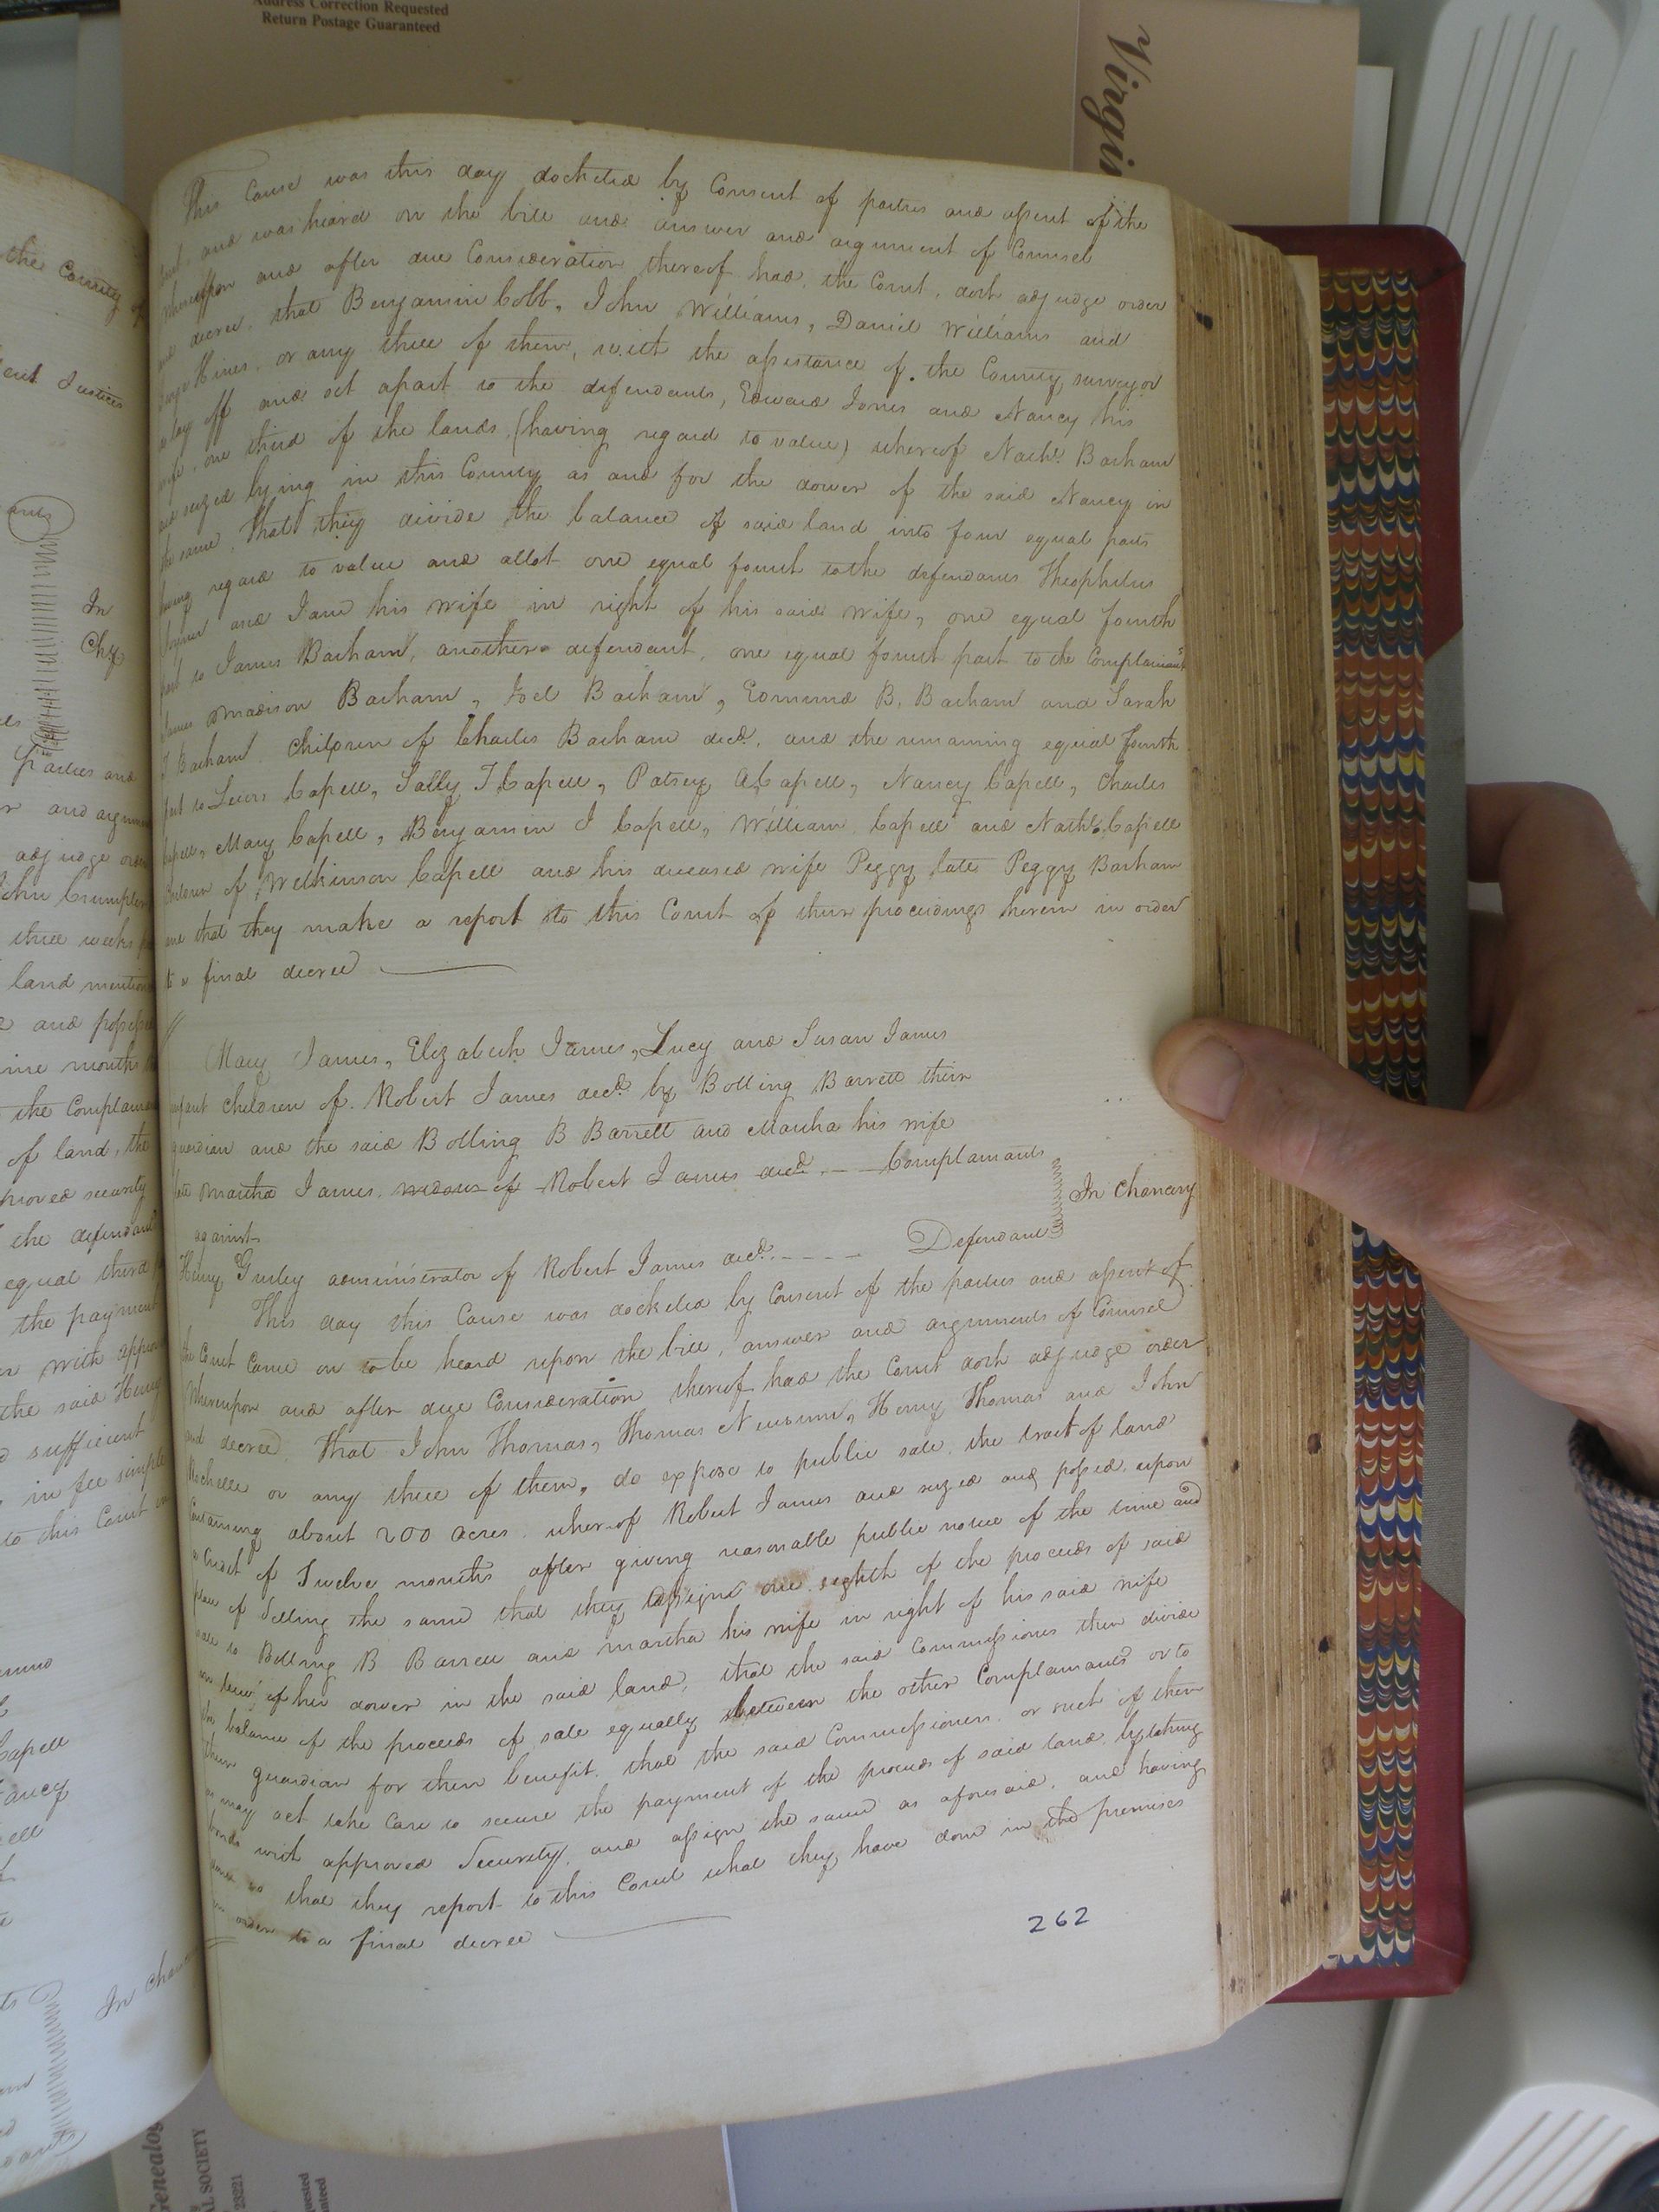 Address Correction Requested
Return Postage Guaranteed
Virgin
This Cause was this day docketed by Consent of parties and assent of the
Court and was heard on the bill and answer and argument of Counsel
Whereupon and after due Consideration thereof had, the Court, doth adjudge order
and decree, that Benjamin Cobb, John Williams, Daniel Williams and
Hines, or any three of them, with the assistance of the County surveyor
lay off and set apart to the defendants, Edward Jones and Nancy his
wife, one third of the lands, (having regard to value) whereof Nathl. Barham
died seized lying in this County as and for the dower of the said Nancy in
the same, That they divide the balance of said land into four equal parts
having regard to value and allot one equal fourth to the defendants Theophilus
Joyner and Jane his wife in right of his said wife, one equal fourth
part to James Barham, another defendant, one equal fourth part to the Complainants
James Madison Barham, Joel Barham, Edmund B. Barham and Sarah
J Barham, Children of Charles Barham decd. and the remaining equal fourth
part to Lewis Capell, Sally T. Capell, Patsey A Capell, Nancy Capell, Charles
Capell, Mary Capell, Benjamin J Capell, William Capell and Nathl. Capell
Children of Wilkinson Capell and his deceased wife Peggy, late Peggy Barham
and that they make a report to this Court of their proceedings herein in order
to a final decree
Mary James, Elizabeth James, Lucy and Susan James
infant children of Robert James decd. by Bolling Barrett their
guardian and the said Bolling B Barrett and Martha his wife
late Martha James, widow of Robert James decd. Complainants
against
In Chancery
Henry Gurley administrator of Robert James decd. Defendant
This day this Cause was docketed by Consent of the parties and assent of
the Court Came on to be heard upon the bill, answer and arguments of Counsel
Whereupon and after due Consideration thereof had the Court doth adjudge order
and decree, That John Thomas, Thomas Newsum, Henry Thomas and John
Rochelle or any three of them, do expose to public sale, the tract of land
Containing about 200 acres, whereof Robert James died seized and possed, upon
a Credit of Twelve months after giving reasonable public notice of the time and
place of Selling the same that they assign one eighth of the proceeds of said
sale to Bolling B Barrett and Martha his wife in right of his said wife
in lieu of her dower in the said land, that the said Commissioners then divide
the balance of the proceeds of sale equally between the other Complainants or to
their guardian for their benefit, that the said Commissioners, or such of them
as may act take Care to secure the payment of the proceeds of said land by taking
bonds with approved Security, and assign the same as aforesaid, and having
done so that they report to this Court what they have done in the premises
in order to a final decree
262
the County of
Justices
In
Chy
Parties and
adjudge order
three weeks
land mention
and
months
the Complain
of land, the
approved security
the defendant
equal third
the payment
with appro
the said Henry
sufficient
in fee simple
to this Court in
Capell
In Chan
Genealog
AL SOCIETY
23221